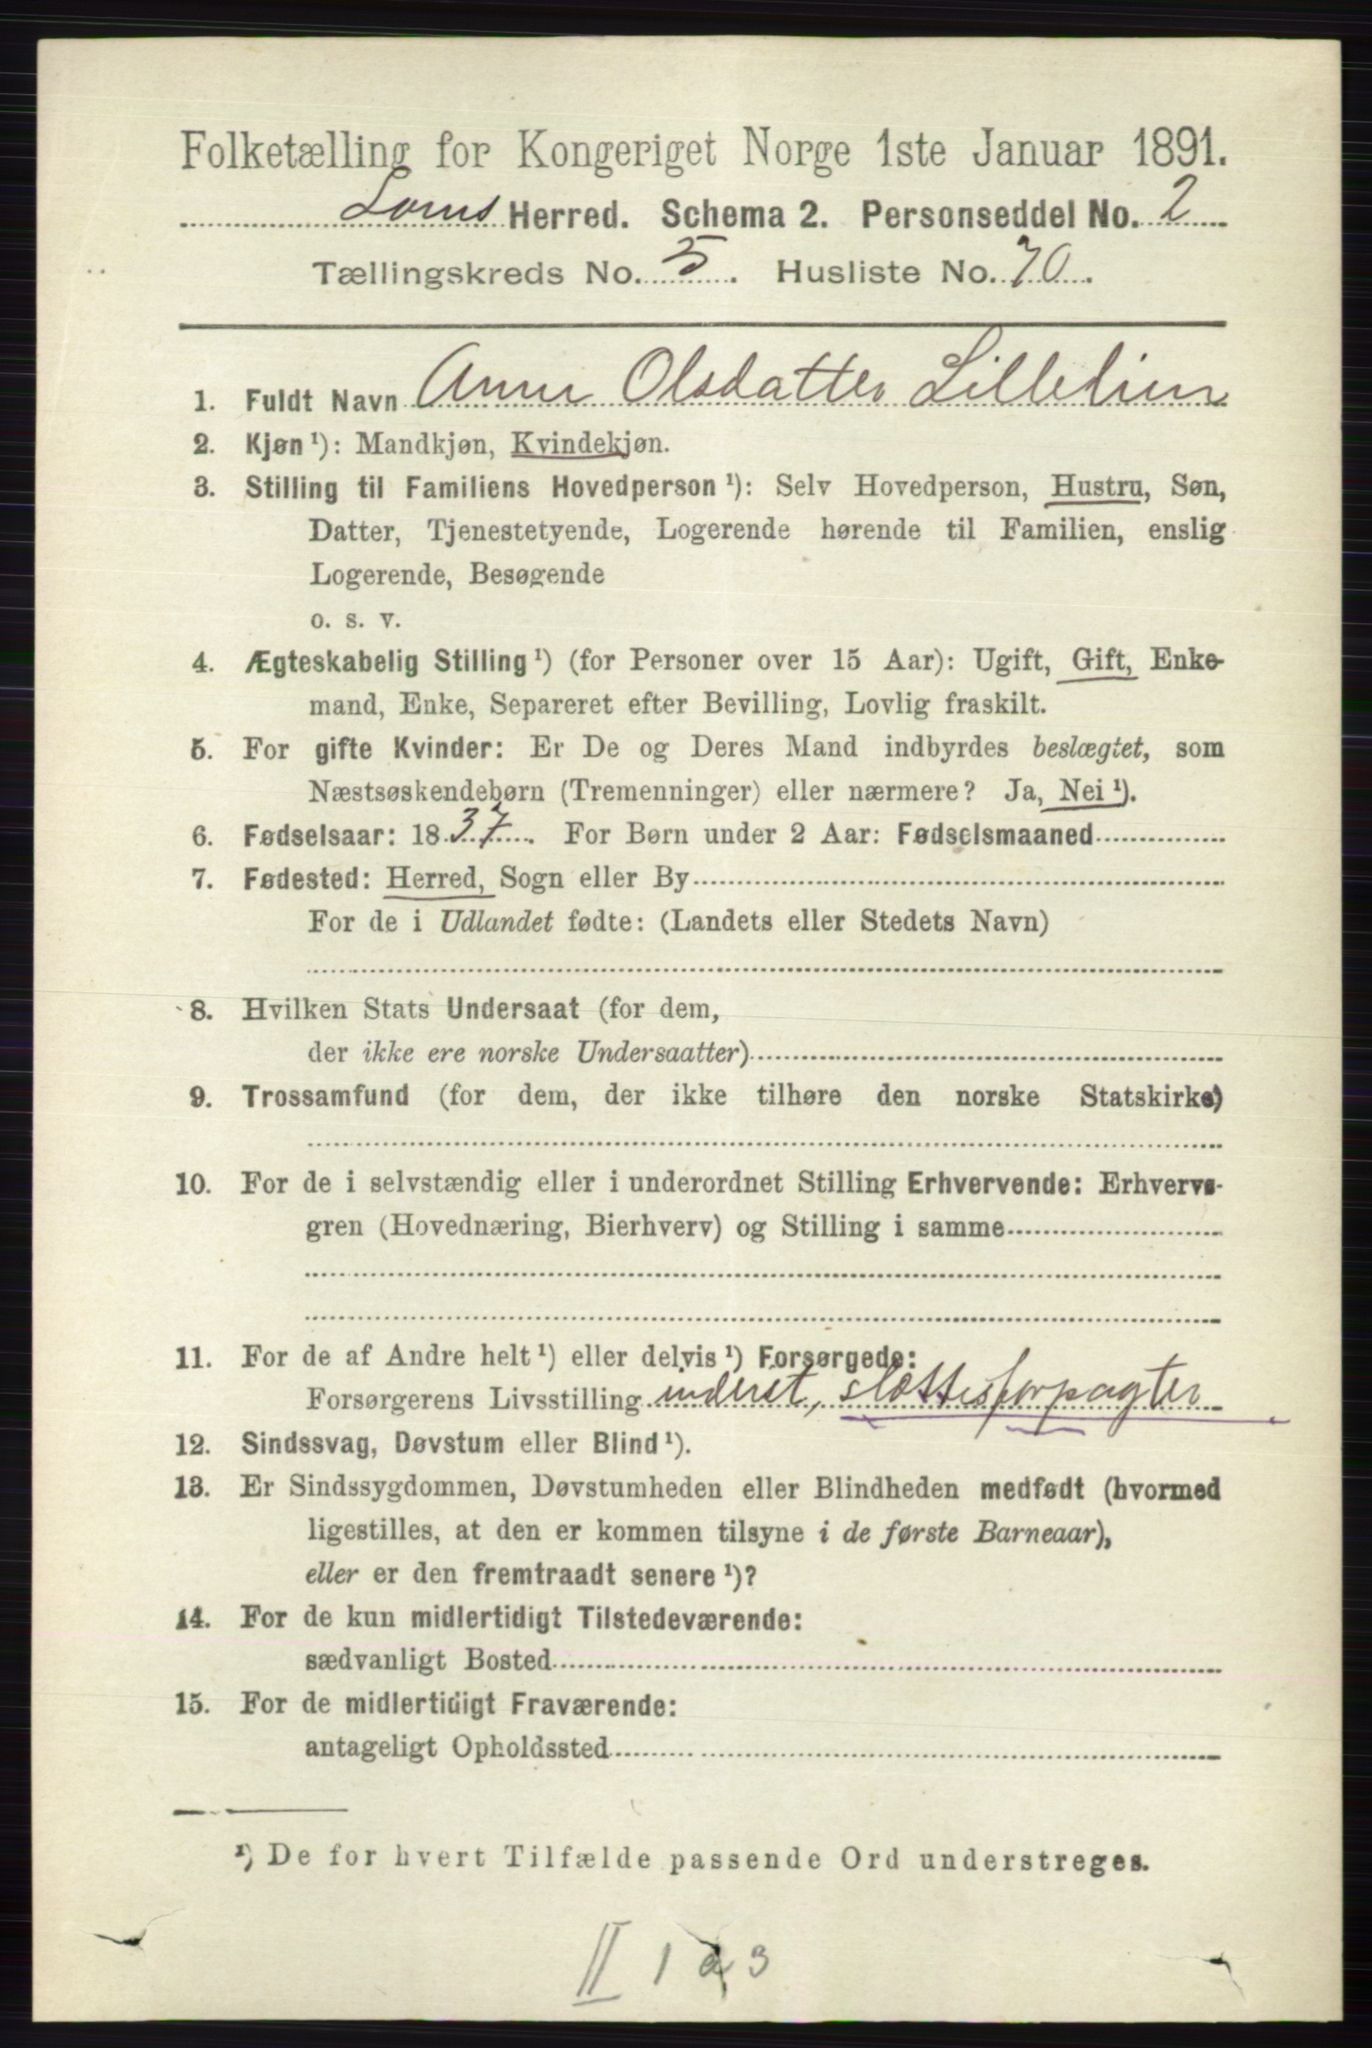 Folketælling for Kongeriget Norge 1ste Januar 1891.
Loms Herred. Schema 2. Personseddel No. 2
Tællingskreds No. 5. Husliste No. 70.
1. Fuldt Navn Anne Olsdatter Lillelien
2. Kjøn¹): Mandkjøn, Kvindekjøn.
3. Stilling til Familiens Hovedperson¹): Selv Hovedperson, Hustru, Søn,
Datter, Tjenestetyende, Logerende hørende til Familien, enslig
Logerende, Besøgende
o. s. v.
4. Ægteskabelig Stilling¹) (for Personer over 15 Aar): Ugift, Gift, Enke-
mand, Enke, Separeret efter Bevilling, Lovlig fraskilt.
5. For gifte Kvinder: Er De og Deres Mand indbyrdes beslægtet, som
Næstsøskendebørn (Tremenninger) eller nærmere? Ja, Nei¹).
6. Fødselsaar: 1837. For Børn under 2 Aar: Fødselsmaaned
7. Fødested: Herred, Sogn eller By
For de i Udlandet fødte: (Landets eller Stedets Navn)
8. Hvilken Stats Undersaat (for dem,
der ikke ere norske Undersaatter)
9. Trossamfund (for dem, der ikke tilhøre den norske Statskirke)
10. For de i selvstændig eller i underordnet Stilling Erhvervende: Erhvervs-
gren (Hovednæring, Bierhverv) og Stilling i samme
11. For de af Andre helt¹) eller delvis¹) Forsørgede:
Forsørgerens Livsstilling inderst, slættesforpagter
12. Sindssvag, Døvstum eller Blind¹).
13. Er Sindssygdommen, Døvstumheden eller Blindheden medfødt (hvormed
ligestilles, at den er kommen tilsyne i de første Barneaar),
eller er den fremtraadt senere¹)?
14. For de kun midlertidigt Tilstedeværende:
sædvanligt Bosted
15. For de midlertidigt Fraværende:
antageligt Opholdssted
¹) De for hvert Tilfælde passende Ord understreges.
II 1 a 3